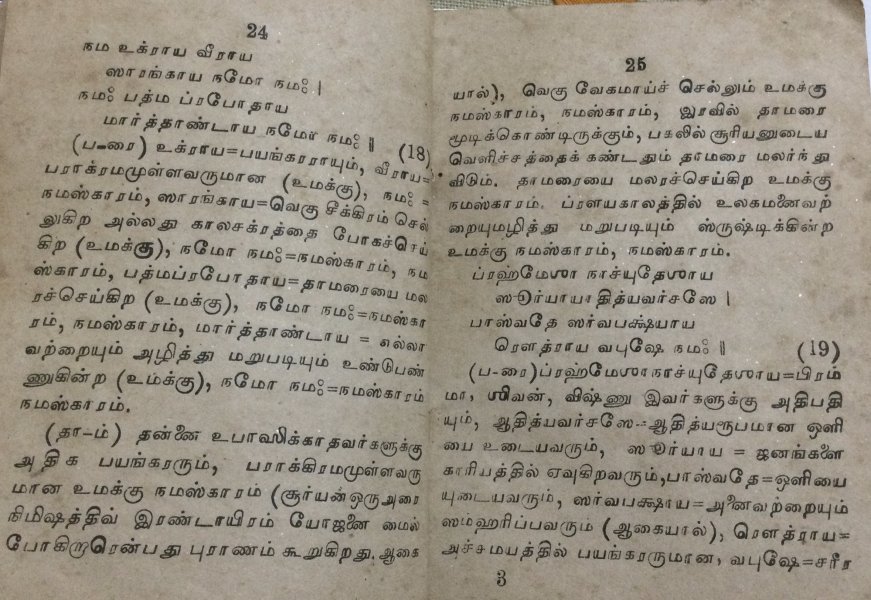 24
நம உக்ராய வீராய
ஸாரங்காய நமோ நமஃ |
நமஃ பத்ம ப்ரபோதாய
மார்த்தாண்டாய நமோ நமஃ || (18)
(ப-ரை) உக்ராய=பயங்கரராயும், வீராய=
பராக்ரமமுள்ளவருமான (உமக்கு), நமஃ =
நமஸ்காரம், ஸாரங்காய=வெகு சீக்கிரம் செல்
லுகிற அல்லது காலசக்ரத்தை போகச்செய்
கிற (உமக்கு), நமோ நமஃ=நமஸ்காரம், நம
ஸ்காரம், பத்மப்ரபோதாய=தாமரையை மல
ரச்செய்கிற (உமக்கு), நமோ நமஃ=நமஸ்கா
ரம், நமஸ்காரம், மார்த்தாண்டாய = எல்லா
வற்றையும் அழித்து மறுபடியும் உண்டுபண்
ணுகின்ற (உம்க்கு), நமோ நமஃ=நமஸ்காரம்
நமஸ்காரம்.
(தா-ம்) தன்னை உபாஸிக்காதவர்களுக்கு
அதிக பயங்கரரும், பராக்கிரமமுள்ளவரு
மான உமக்கு நமஸ்காரம் (சூர்யன் ஒரு அரை
நிமிஷத்திவ் இரண்டாயிரம் யோஜனை மைல்
போகிறாரென்பது புராணம் கூறுகிறது. ஆகை
25
யால்), வெகு வேகமாய்ச் செல்லும் உமக்கு
நமஸ்காரம், நமஸ்காரம், இரவில் தாமரை
மூடிக்கொண்டிருக்கும், பகலில் சூரியனுடைய
வெளிச்சத்தைக் கண்டதும் தாமரை மலர்ந்து
விடும். தாமரையை மலரச்செய்கிற உமக்கு
நமஸ்காரம். ப்ரளயகாலத்தில் உலகமனைவற்
றையுமழித்து மறுபடியும் ஸ்ருஷ்டிக்கின்ற
உமக்கு நமஸ்காரம், நமஸ்காரம்.
ப்ரஹ்மேஶா நாச்யுதேஶாய
ஸூர்யாயாதித்யவர்சஸே |
பாஸ்வதே ஸர்வபக்ஷ்யாய
ரௌத்ராய வபுஷே நமஃ || (19)
(ப-ரை) ப்ரஹ்மேஶாநாச்யுதேஶாய=பிரம்
மா, ஶிவன், விஷ்ணு இவர்களுக்கு அதிபதி
யும், ஆதித்யவர்சஸே=ஆதித்யரூபமான ஒளி
யை உடையவரும், ஸூர்யாய = ஜனங்களை
காரியத்தில் ஏவுகிறவரும்,பாஸ்வதே=ஒளியை
யுடையவரும், ஸர்வபக்ஷாய=அனைவற்றையும்
ஸம்ஹரிப்பவரும் (ஆகையால்), ரௌத்ராய=
அச்சமயத்தில் பயங்கரருமான, வபுஷே=சரீர
3